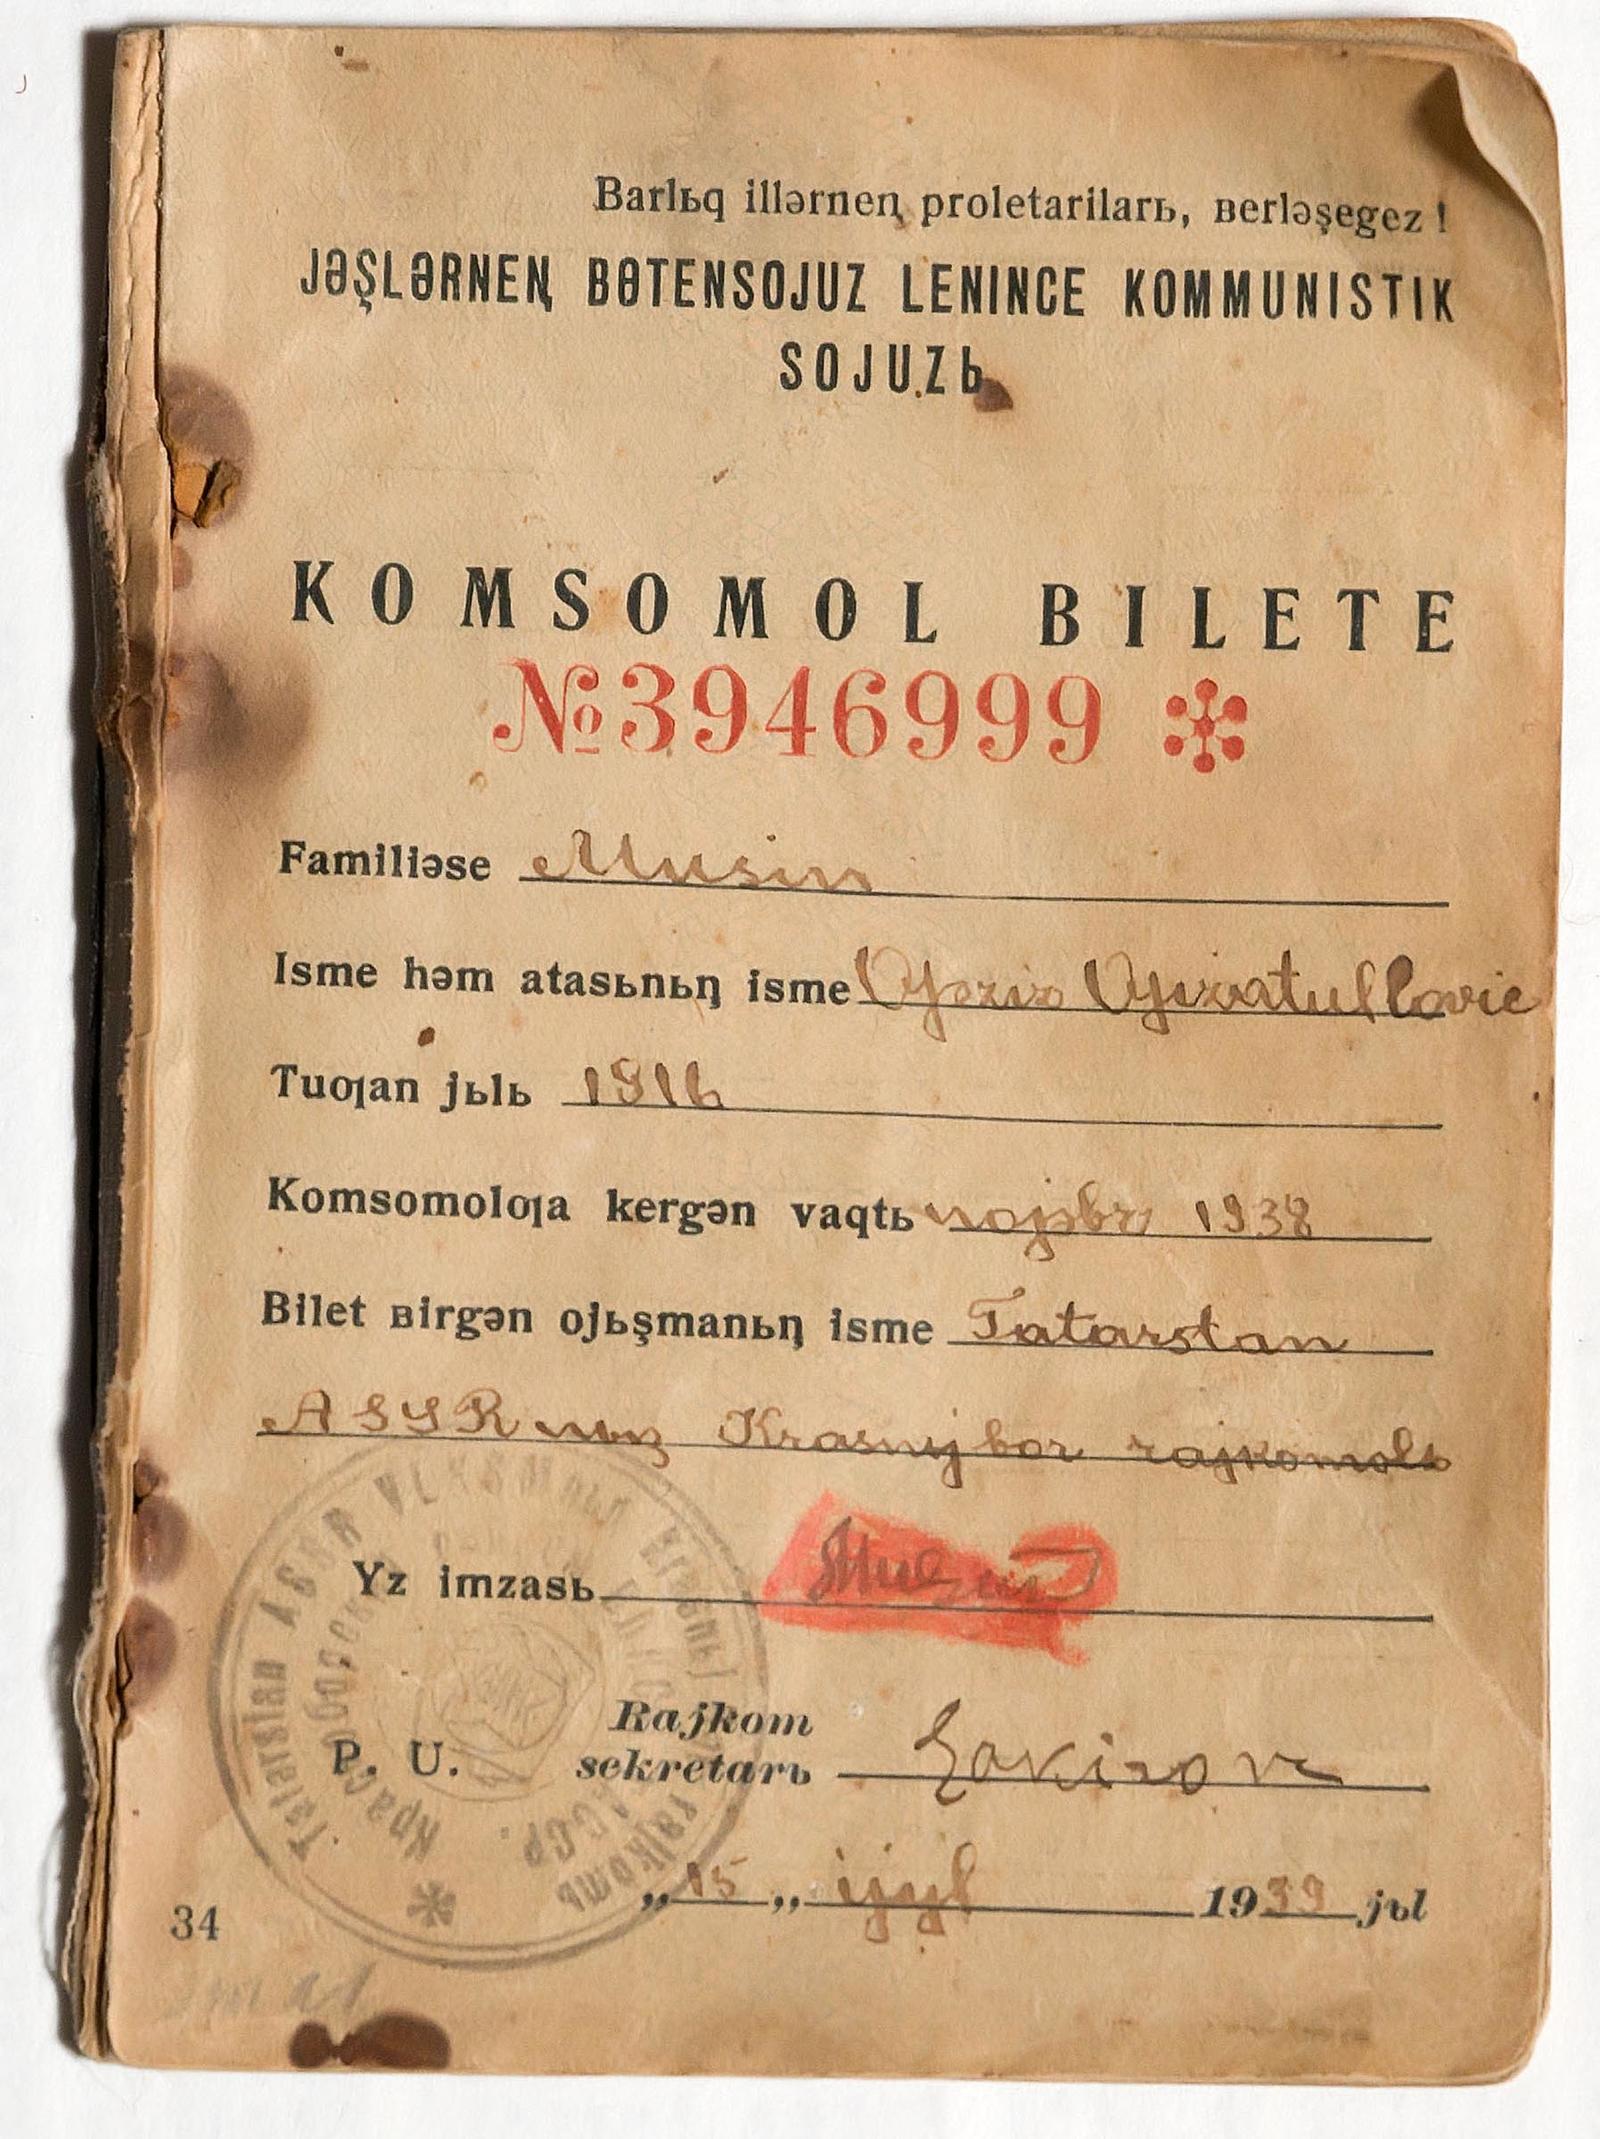 Barlьq illərneꞑ proletarilarь, ʙerləşegez !
JƏŞLƏRNEꞐ BɵTENSOJUZ LENINCE KOMMUNISTIK
SOJUZЬ
KOMSOMOL BILETE
№3946999
Familiəse Musin
Isme həm atasьnьꞑ isme Ƣəziz Ƣizzatullovic
Tuƣan jьlь 1916
Komsomolƣa kergən vaqtь nojabr 1938
Bilet ʙirgən ojьşmanьꞑ isme Tatarstan
ASSR nьꞑ Krasnyjbor rajkomolь
Yz imzasь
Rajkom
P. U. sekretarь Zakirov
„15„ ijyl 1939 jьl
34